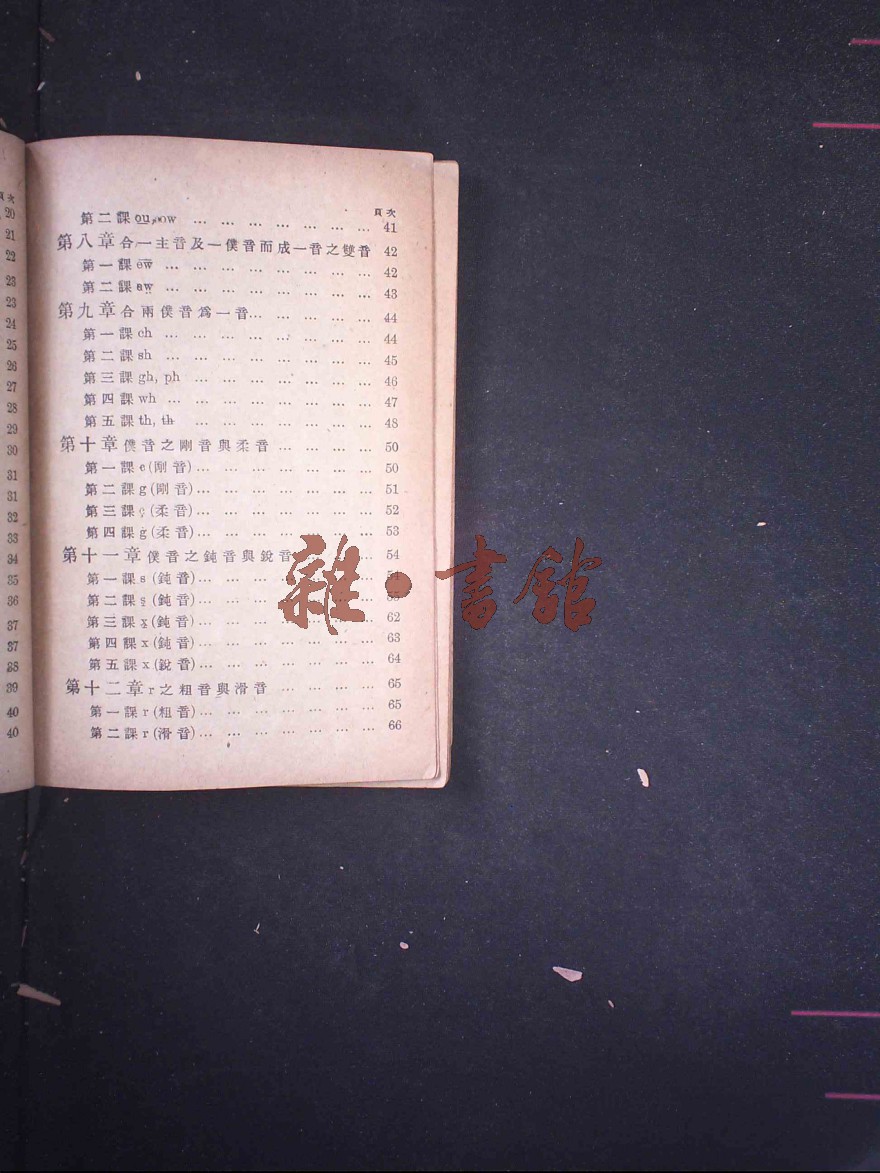 頁次
第二課 ou, ow ... ... ... ... ... ... ... 41
第八章 合一主音及一僕音而成一音之雙音 42
第一課 ew ... ... ... ... ... ... ... ... 42
第二課 aw ... ... ... ... ... ... ... ... 43
第九章 合兩僕音爲一音... ... ... ... ... 44
第一課 ch ... ... ... ... ... ... ... ... 44
第二課 sh ... ... ... ... ... ... ... ... 45
第三課 gh, ph ... ... ... ... ... ... ... 46
第四課 wh ... ... ... ... ... ... ... ... 47
第五課 th, th ... ... ... ... ... ... ... 48
第十章 僕音之剛音與柔音 ... ... ... ... 50
第一課 c (剛音)... ... ... ... ... ... ... 50
第二課 g (剛音)... ... ... ... ... ... ... 51
第三課 ç (柔音)... ... ... ... ... ... ... 52
第四課 ġ (柔音)... ... ... ... ... ... ... 53
第十一章 僕音之鈍音與銳音 ... ... ... 54
第一課 s (鈍音)... ... ... ... ... ... ... 54
第二課 s (鈍音)... ... ... ... ... ... ...
第三課 x (鈍音)... ... ... ... ... ... ... 62
第四課 x (鈍音)... ... ... ... ... ... ... 63
第五課 x (銳音)... ... ... ... ... ... ... 64
第十二章 r 之粗音與滑音 ... ... ... ... 65
第一課 r (粗音)... ... ... ... ... ... ... 65
第二課 r (滑音)... ... ... ... ... ... ... 66
頁次
20
21
22
23
23
24
25
26
27
28
29
30
31
31
32
33
34
35
36
37
37
38
39
40
40
雜·書館